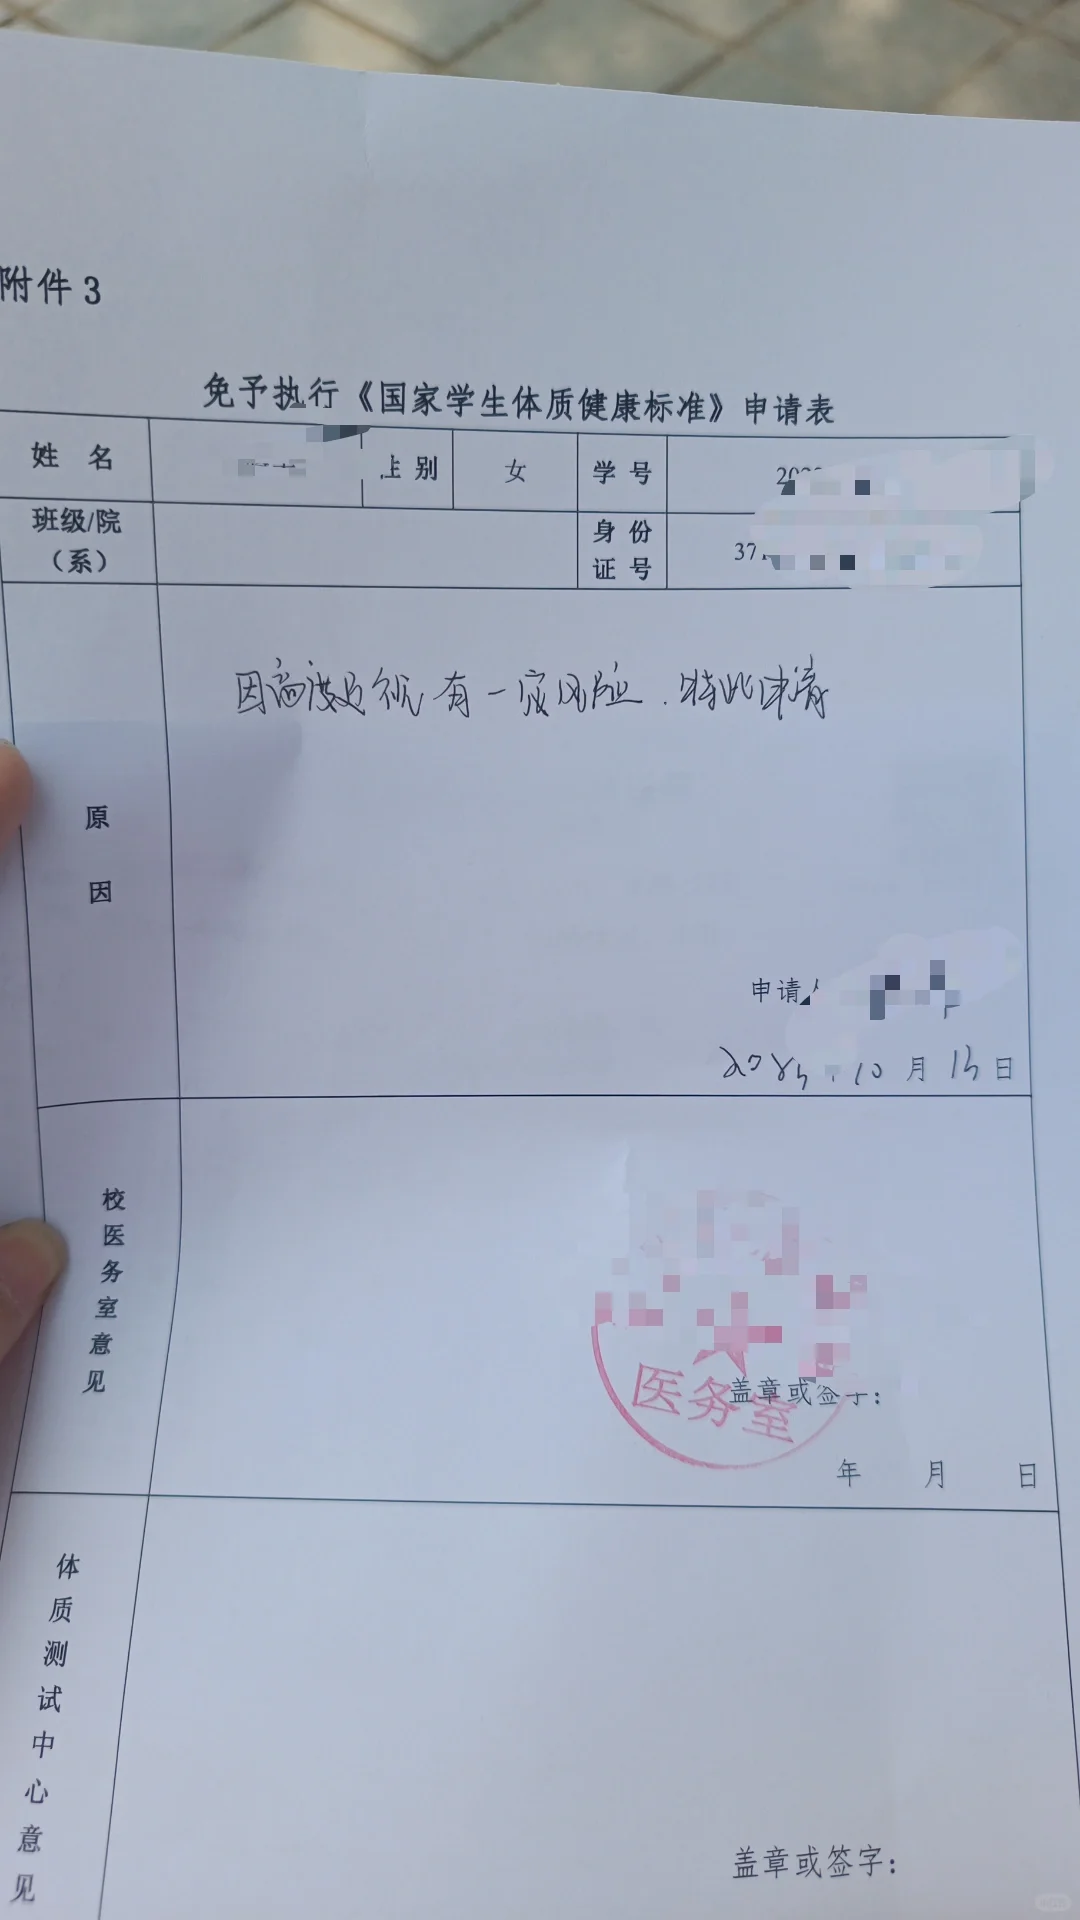 附件3
免予执行《国家学生体质健康标准》申请表
姓 名
性 别 女 学 号
班级/院(系) 身 份 证 号 37
因高度近视有一定风险.特此申请
原因
申请人
10月13日
校医务室意见
医务室
盖章或签字:
年 月 日
体质测试中心意见
盖章或签字: